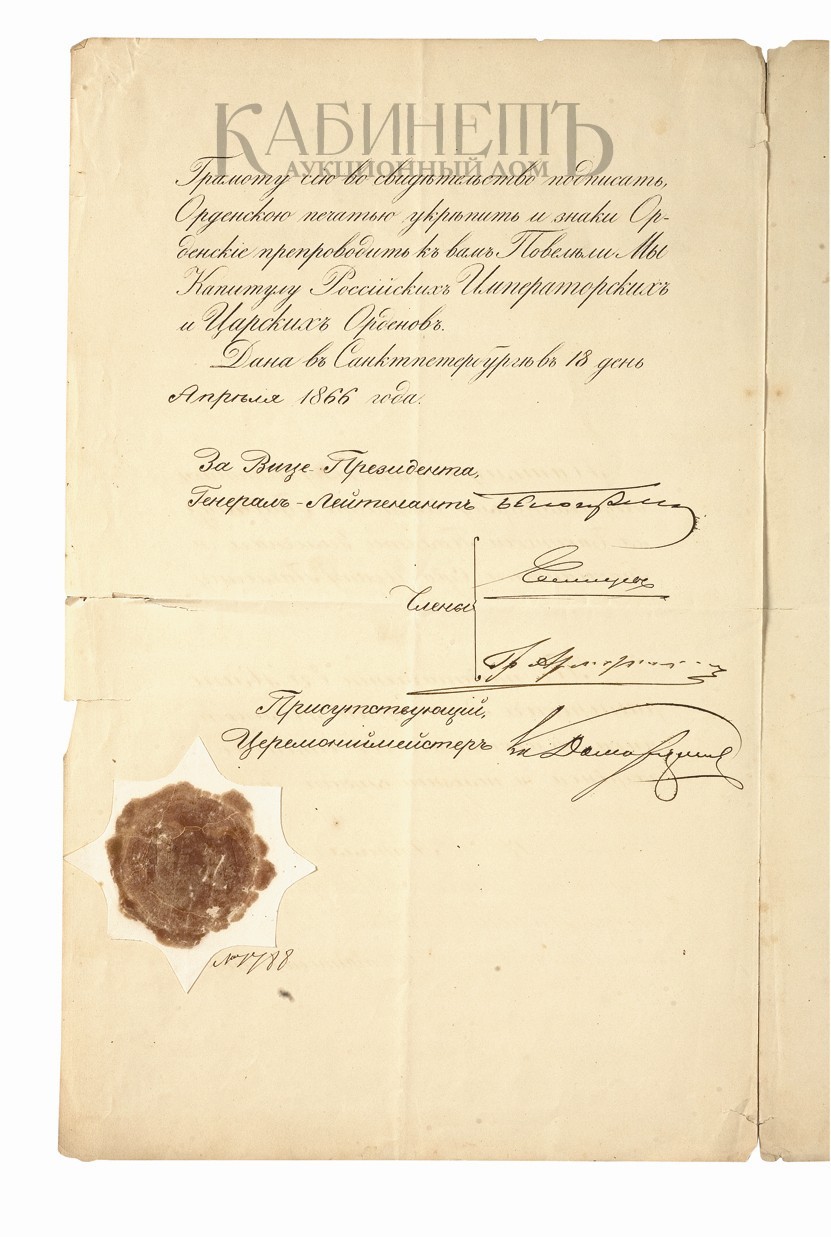 КАБИНЕТЪ
АУКЦИОННЫЙ ДОМ
Грамоту сію во свидѣтельство подписать,
Орденскою печатью укрѣпить и знаки Ор-
денскіе препроводить къ вамъ Повелѣли Мы
Капитулу Россійскихъ Императорскихъ
и Царскихъ Орденовъ.
Дана въ Санктпетербургѣ въ 13 день
Апрѣля 1866 года.
За Вице-Президента,
Генералъ-Лейтенантъ
Члены
Гр
Присутствующій,
Церемоніймейстеръ
№ 1788